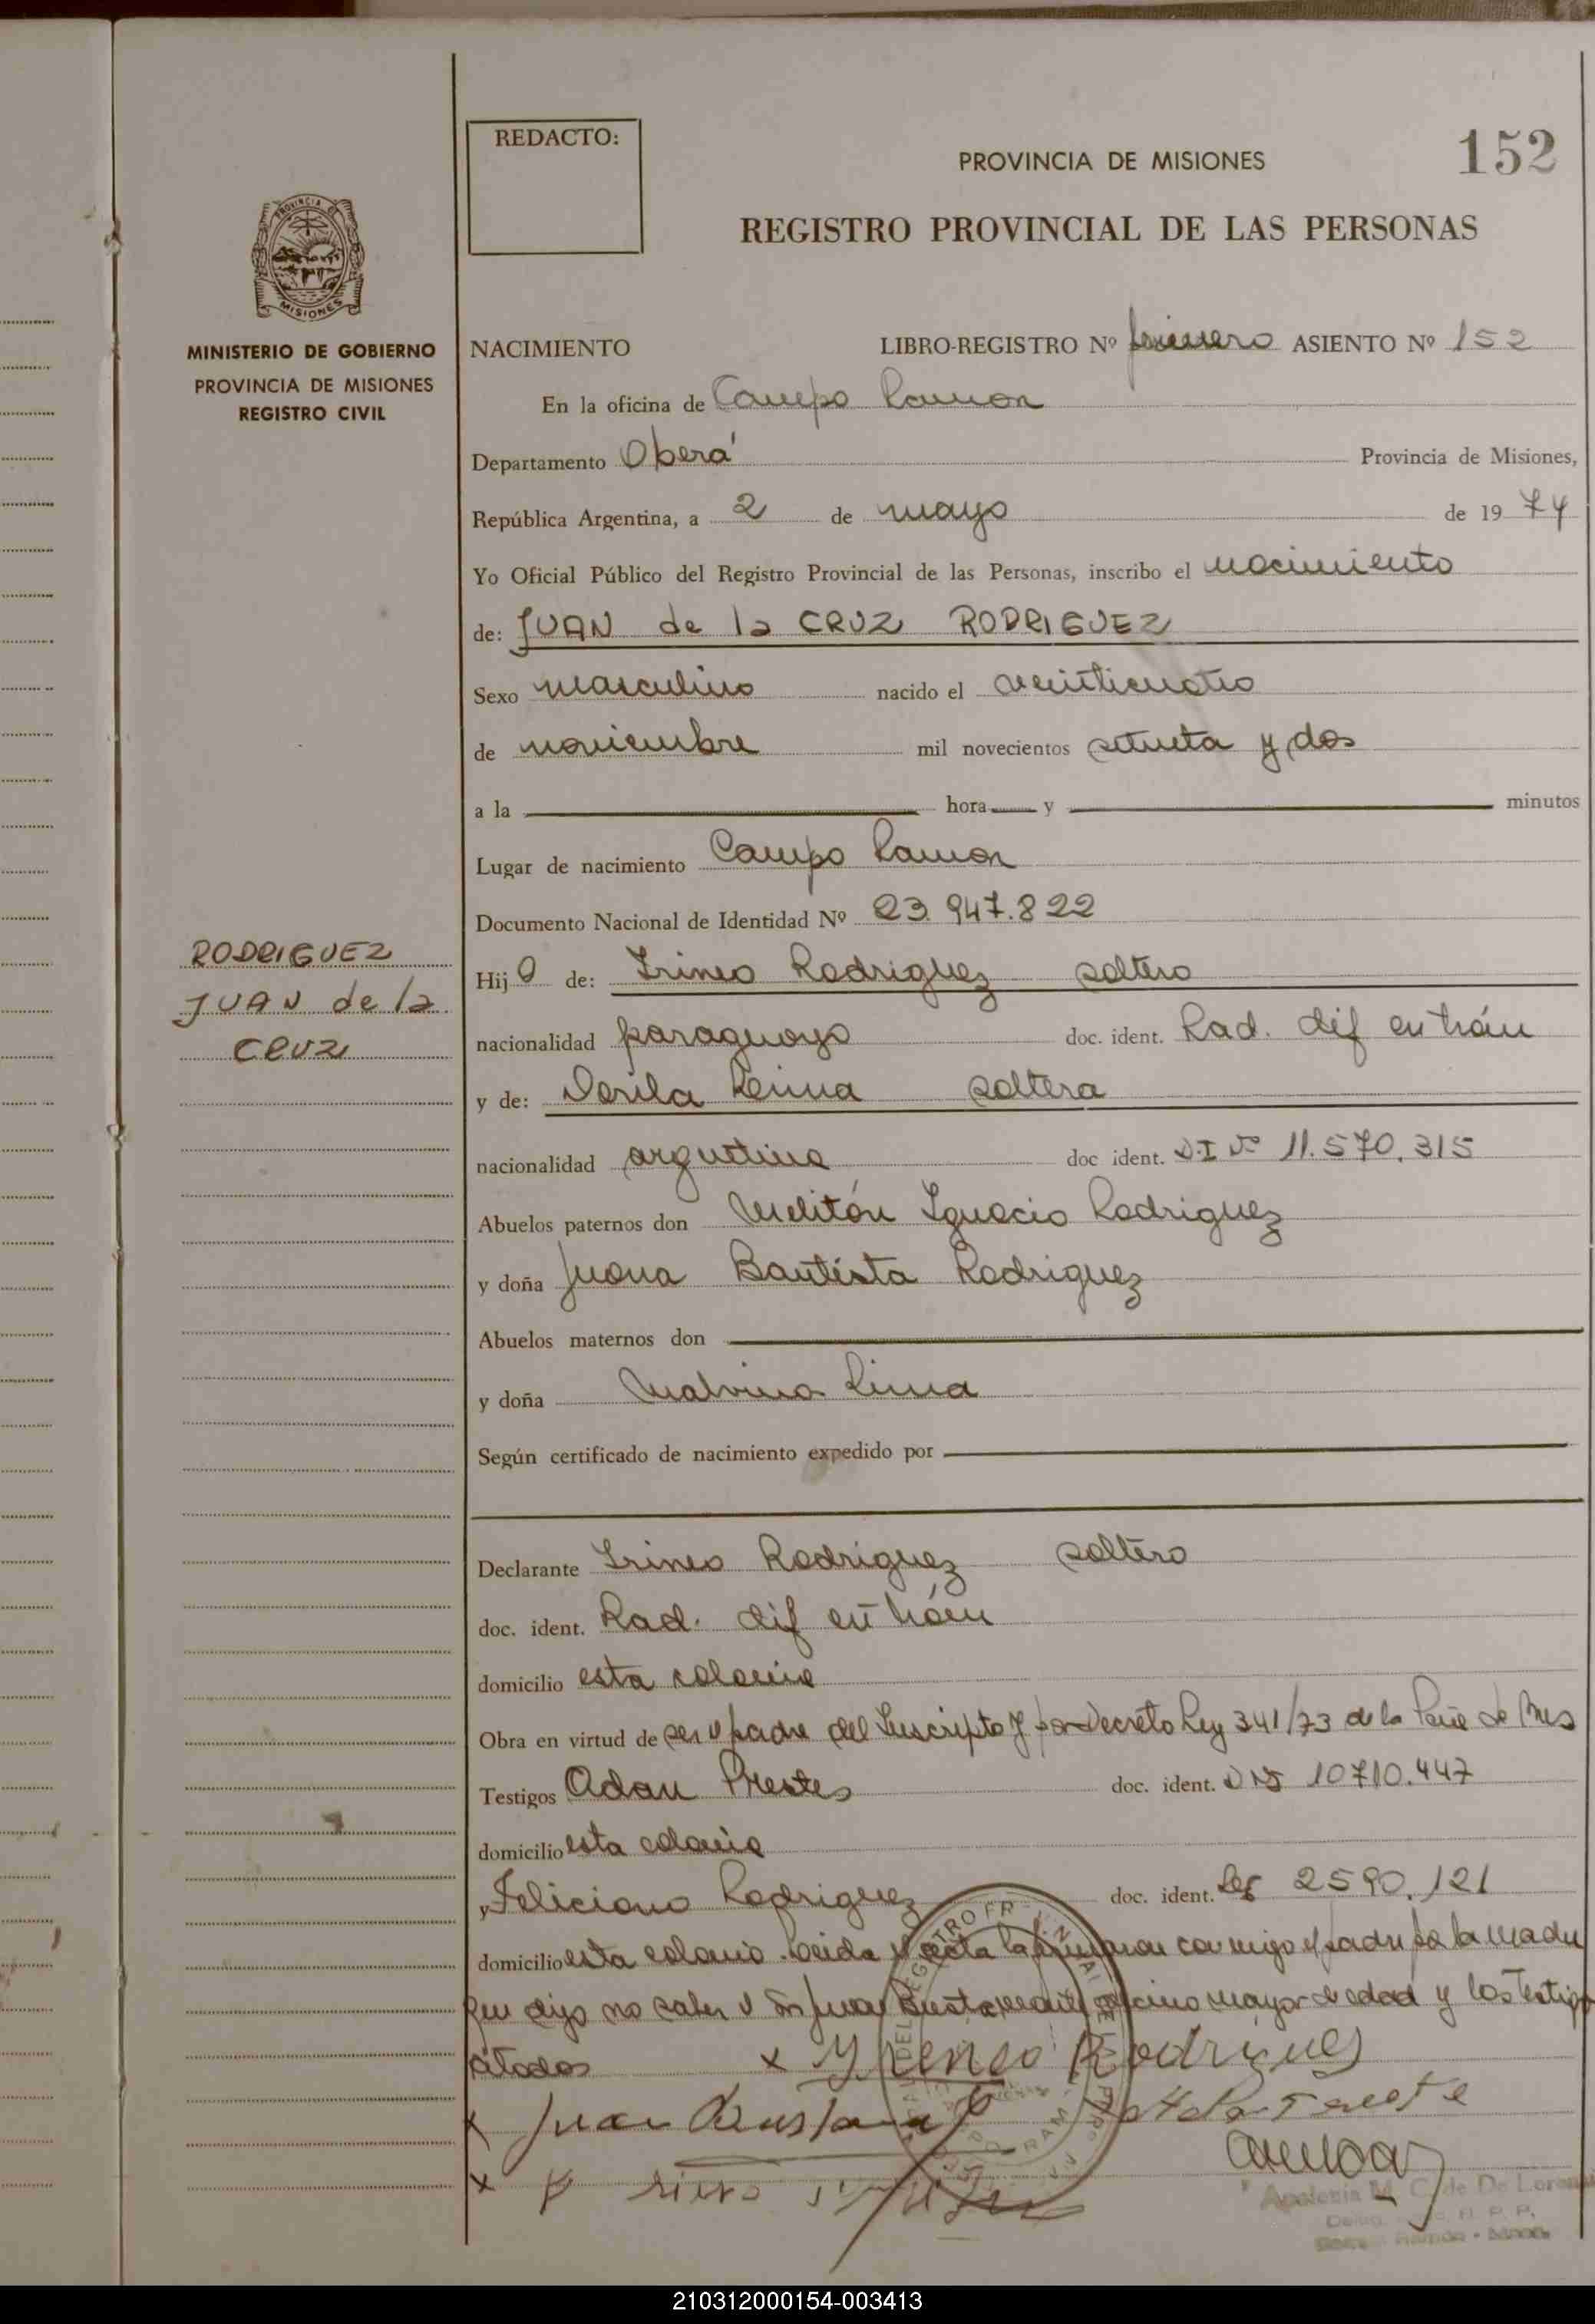 REDACTO:
PROVINCIA DE MISIONES
152
REGISTRO PROVINCIAL DE LAS PERSONAS
PROVINCIA DE
MISIONES
MINISTERIO DE GOBIERNO
PROVINCIA DE MISIONES
REGISTRO CIVIL
NACIMIENTO LIBRO-REGISTRO Nº primero ASIENTO Nº 152
En la oficina de Campo Ramon
Departamento Oberá Provincia de Misiones,
República Argentina, a 2 de mayo de 1974
Yo Oficial Público del Registro Provincial de las Personas, inscribo el nacimiento
de: JUAN de la CRUZ RODRIGUEZ
Sexo masculino nacido el veinticuatro
de noviembre mil novecientos setenta y dos
a la hora y minutos
Lugar de nacimiento Campo Ramon
Documento Nacional de Identidad Nº 23.947.822
RODRIGUEZ
JUAN de la
CRUZ
Hijo de: Irineo Rodriguez soltero
nacionalidad paraguayo doc. ident. Rad. dif en trám
y de: Lima soltera
nacionalidad argentina doc ident. D.I Nº 11.570.315
Abuelos paternos don Melitón Ignacio Rodriguez
y doña Juana Bautista Rodriguez
Abuelos maternos don
y doña Malvina Lima
Según certificado de nacimiento expedido por
Declarante Irineo Rodriguez soltero
doc. ident. Rad. dif en trám
domicilio esta colonia
Obra en virtud de ser el padre del Suscripto y por Decreto Ley 341/73 de la de Mnes
Testigos Adan Prestes doc. ident. DNI 10710.447
domicilio esta colonia
y Feliciano Rodriguez doc. ident. 2590.121
domicilio esta colonia. Leida el acta la firmaron conmigo el padre por la madre
que dijo no saber Juan Bustamante vecino mayor de edad y los testigos
citados x Rodriguez
x Juan
x
Apolonia M. C. de De
R. P. P.
Ramón - 
210312000154-003413